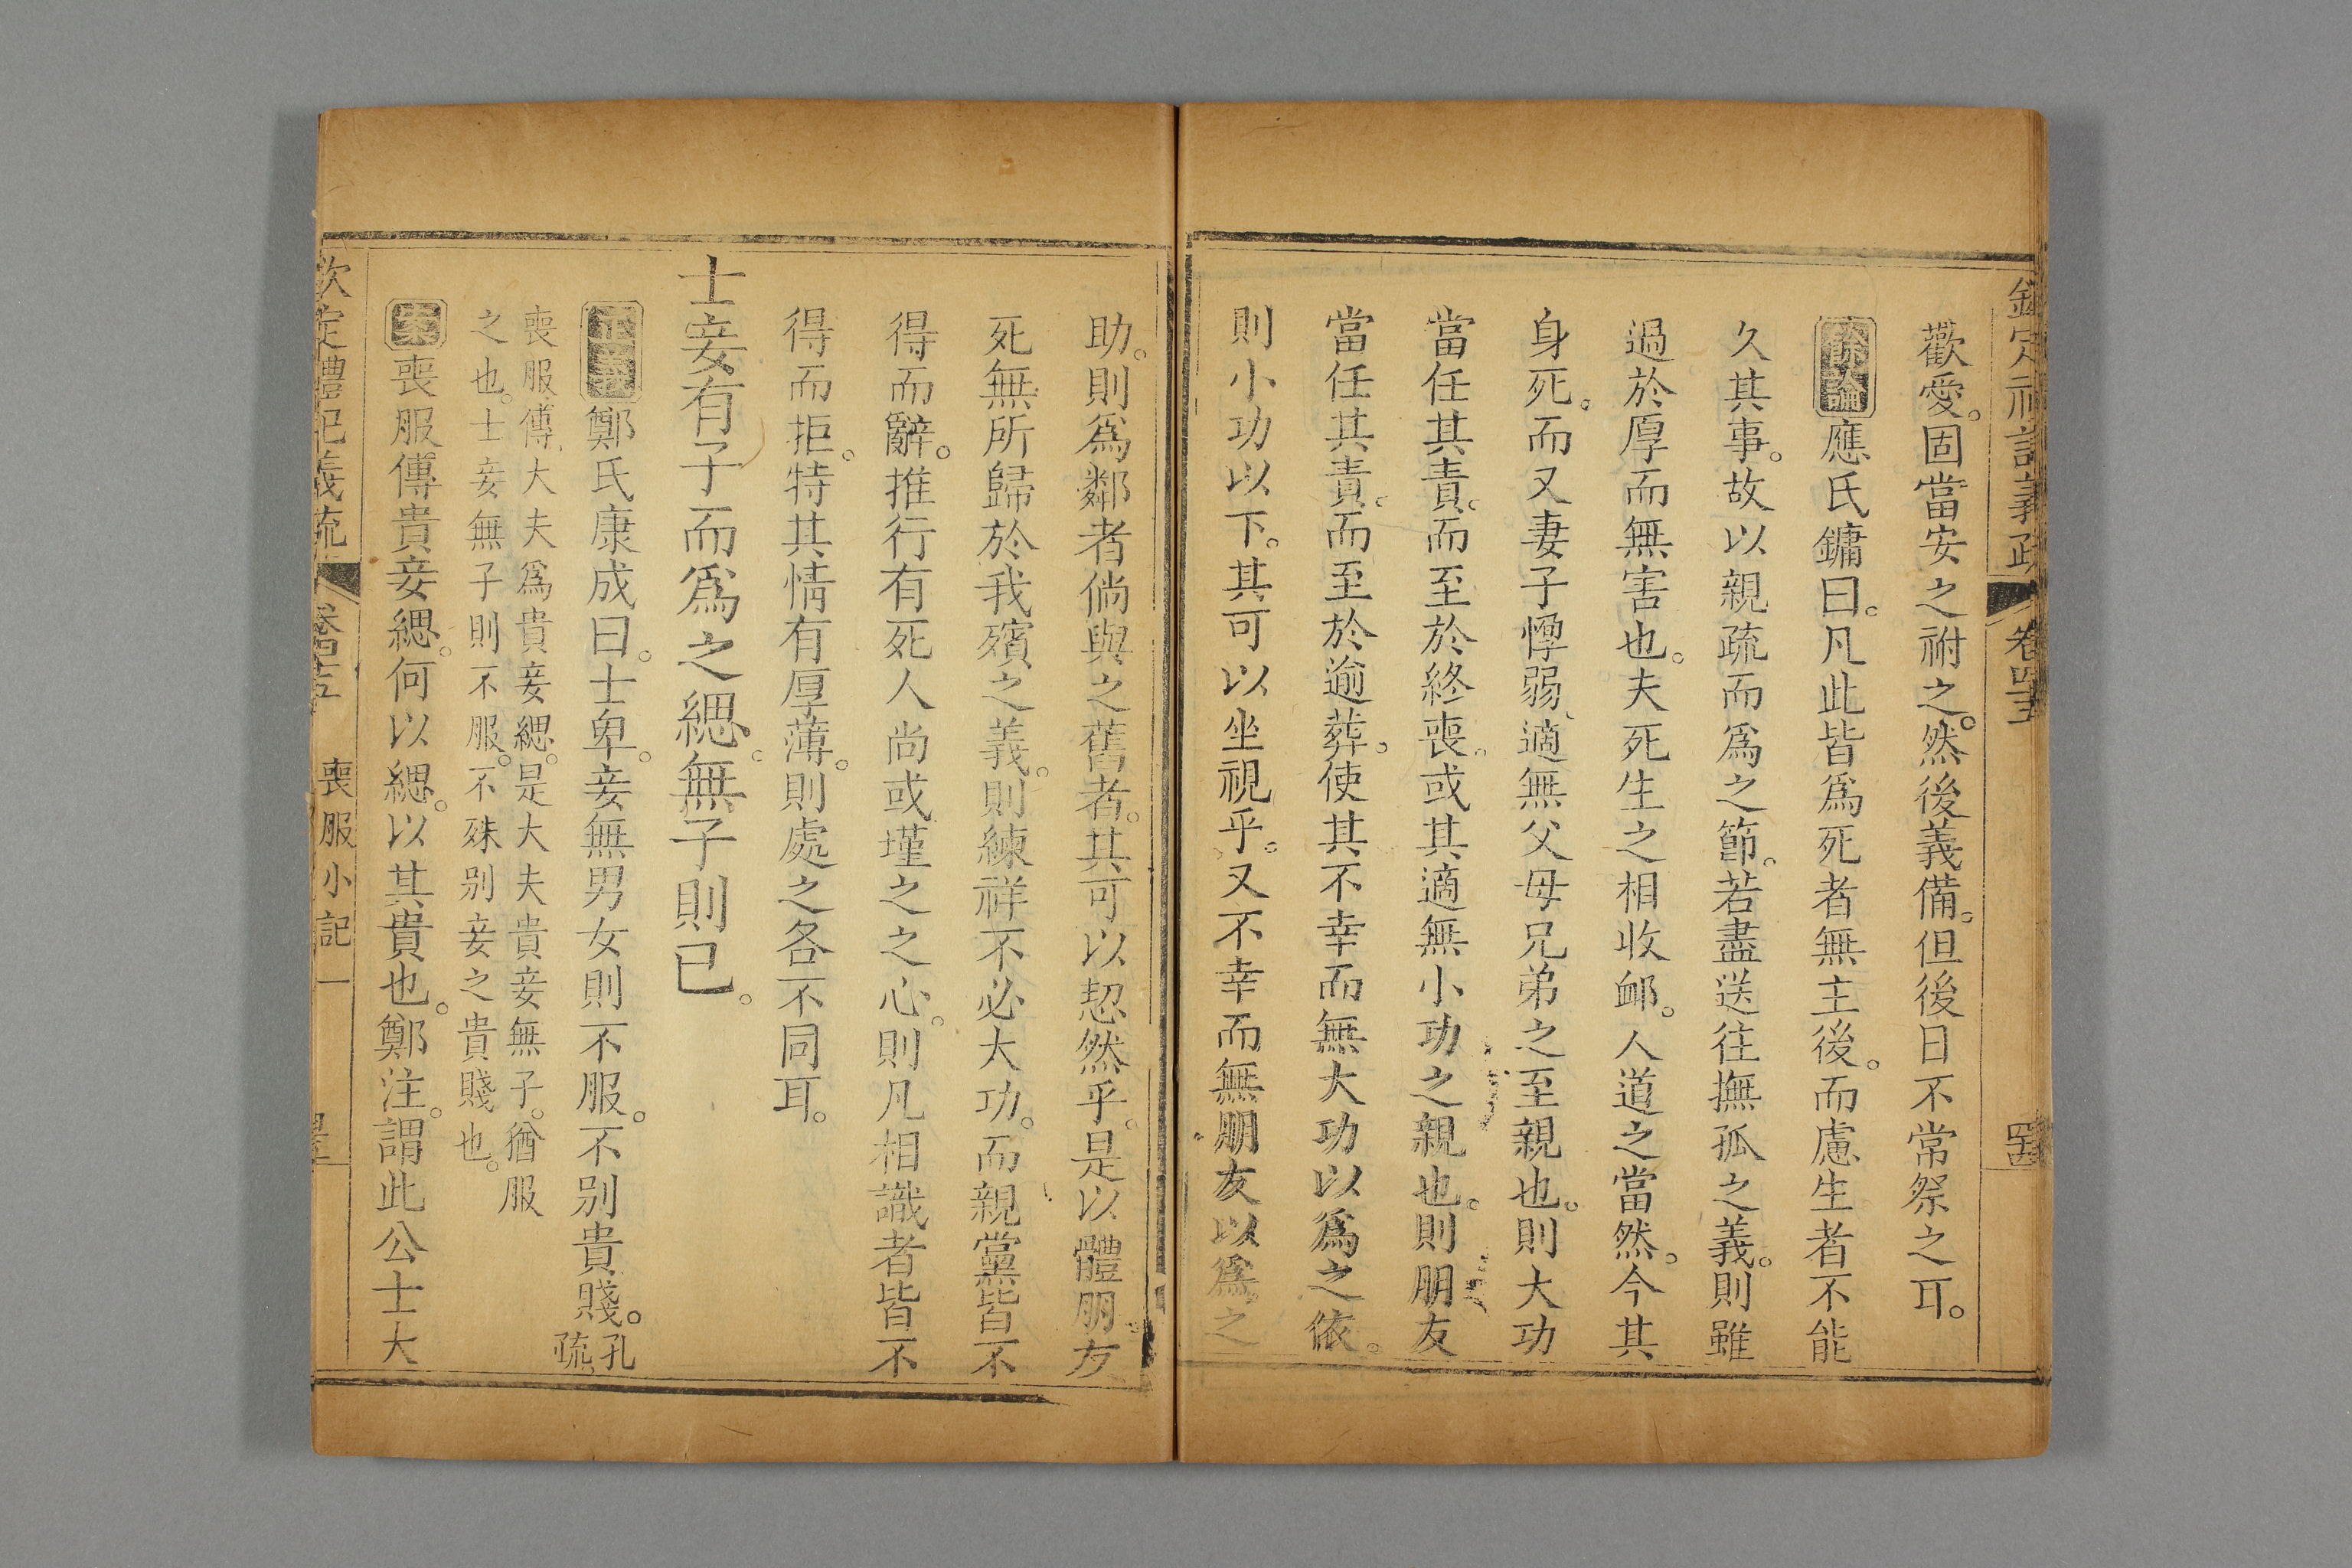 歡愛。固當安之祔之。然後義備。但後日不常祭之耳。
餘論應氏鏞曰。凡此皆爲死者無主後。而慮生者不能
久其事。故以親疏而爲之節。若盡送往撫孤之義。則雖
過於厚而無害也。夫死生之相收䘏。人道之當然。今其
身死。而又妻子惸弱、適無父母兄弟之至親也。則大功
當任其責。而至於終喪。或其適無小功之親也。則朋友
當任其責。而至於逾葬。使其不幸而無大功以爲之依。
則小功以下。其可以坐視乎。又不幸而無朋友以爲之
助。則爲鄰者倘與之舊者。其可以恝然乎。是以體朋友
死無所歸於我殯之義。則練祥不必大功。而親黨皆不
得而辭。推行有死人尚或墐之之心。則凡相識者皆不
得而拒。特其情有厚薄。則處之各不同耳。
士妾有子而爲之緦。無子則已。
正義鄭氏康成曰。士卑。妾無男女則不服。不别貴賤。孔疏
喪服傳、大夫爲貴妾緦。是大夫貴妾無子。猶服
之也。士妾無子則不服。不殊别妾之貴賤也。
案喪服傳貴妾緦。何以緦。以其貴也。鄭注。謂此公士大
欽定禮記義疏
喪服小記一